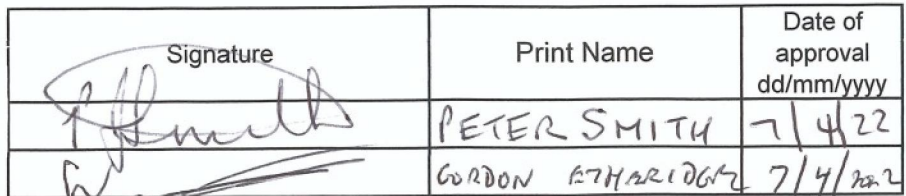 Signature Print Name Date of approval dd/mm/yyyy
P Smith PETER SMITH 7/4/22
GORDON ETHARIDGE 7/4/2022